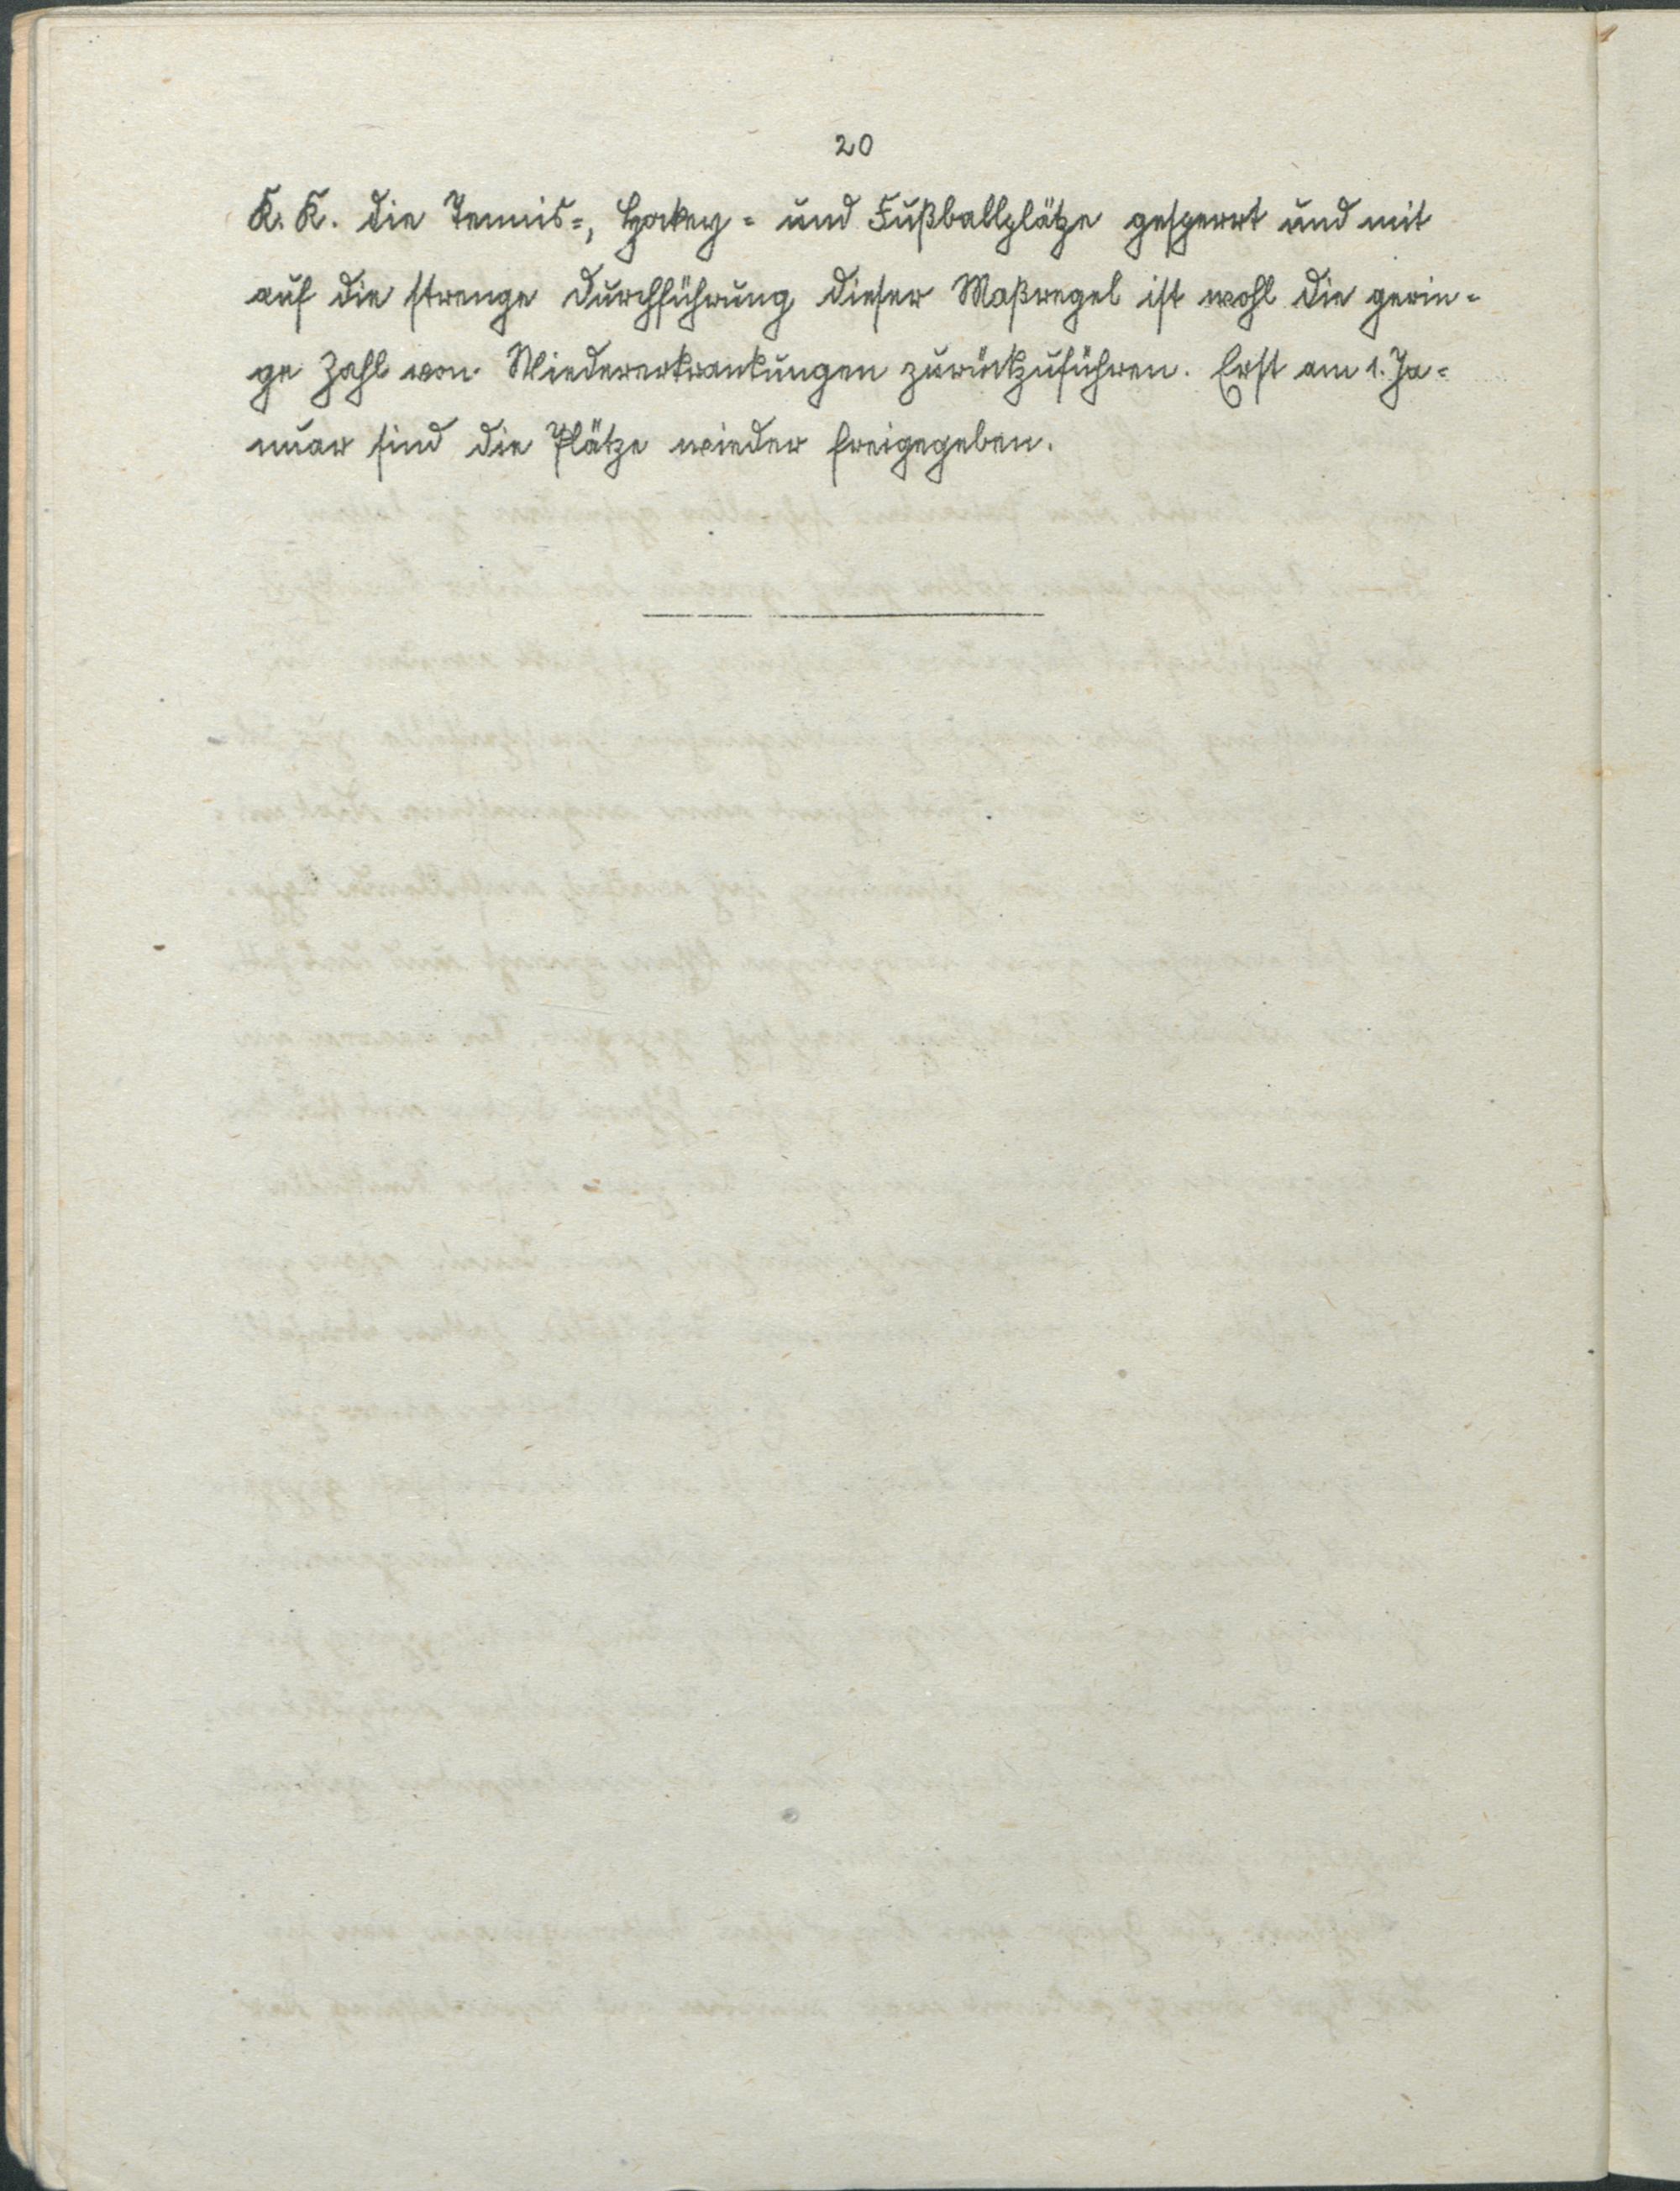 20
K. K. die Tennis=, Hockey= und Fußballplätze gesperrt und mit
auf die strenge Durchführung dieser Maßregel ist wohl die gerin=
ge Zahl von Wiedererkrankungen zurückzuführen. Erst am 1. Ja=
nuar sind die Plätze wieder freigegeben.